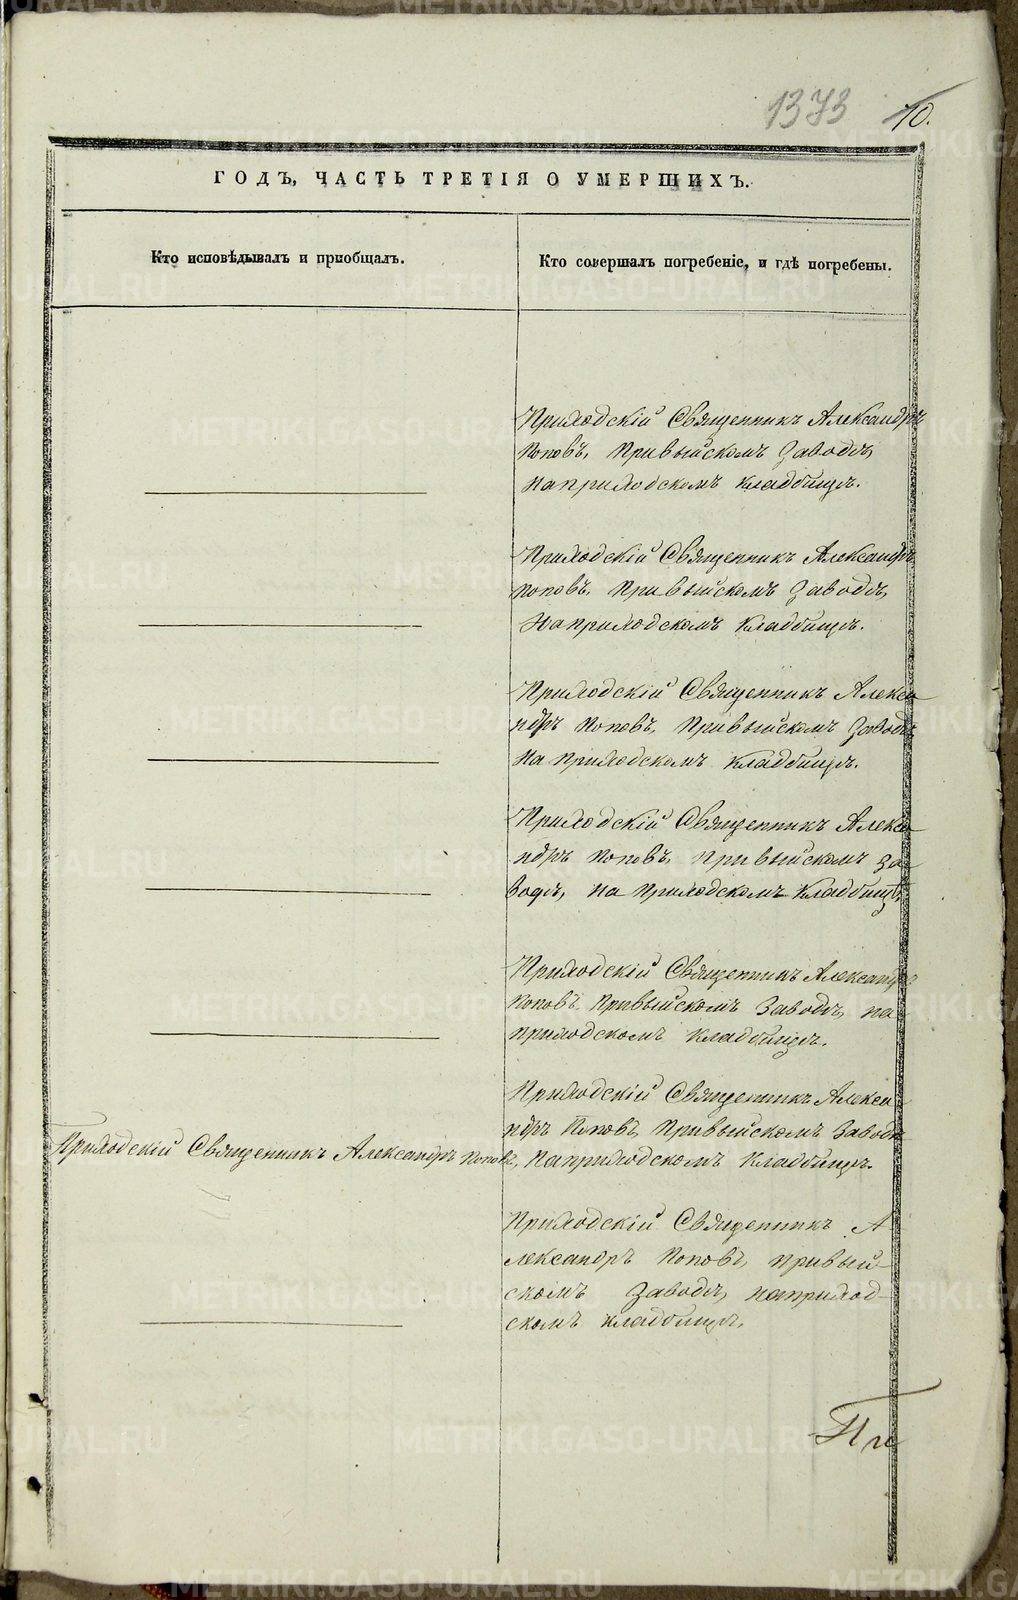 1373 10.
ГОДЪ, ЧАСТЬ ТРЕТІЯ О УМЕРШИХЪ.
Кто исповѣдывалъ и пріобщалъ.
Кто совершалъ погребеніе, и гдѣ погребены.
Приходскій Священникъ Александръ
Поповъ, Привыйскомъ Заводѣ,
на приходскомъ кладбищѣ.
Приходскій Священникъ Александръ
поповъ, Привыйскомъ Заводѣ,
На приходскомъ кладбищѣ.
Приходскій Священникъ Алекса
ндръ Поповъ, Привыйскомъ Заводѣ
на приходскомъ кладбищѣ.
Приходскій Священникъ Алекса
ндръ поповъ, привыйскомъ за-
водѣ, на приходскомъ кладбищѣ,
Приходскій Священникъ Александръ
поповъ Привыйскомъ Заводѣ, на
приходскомъ кладбищѣ.
Приходскій Священникъ Алекса-
ндръ Поповъ, Привыйскомъ Заводѣ
Приходскій Священникъ Александръ поповъ, На приходскомъ кладбищѣ.
Приходскій Священникъ А
лександръ Поповъ, привый-
скомъ Заводѣ, на приход-
скомъ кладбищѣ,
METRIKI.GASO-URAL.RU